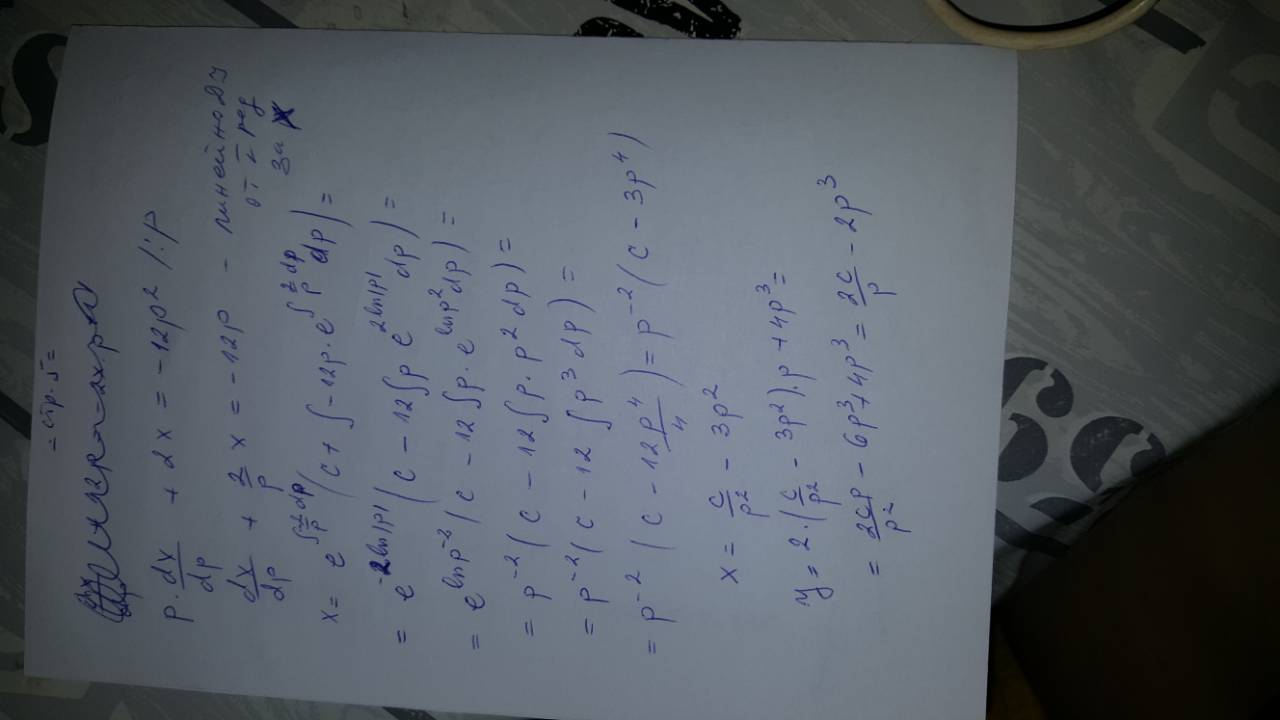 = стр. 5 =
p · dx/dp + 2x = -12p² /:p
dx/dp + 2/p x = -12p - линейно ДУ
от I ред
за x
x = e^(∫-2/p dp) (c + ∫-12p · e^(∫2/p dp) dp) =
= e^(-2ln|p|) (c - 12∫p e^(2ln|p|) dp) =
= e^(lnp⁻²) (c - 12∫p · e^(lnp²) dp) =
= p⁻² (c - 12∫p · p² dp) =
= p⁻² (c - 12 ∫p³ dp) =
= p⁻² (c - 12p⁴/4) = p⁻² (c - 3p⁴)
x = c/p² - 3p²
y = 2 · (c/p² - 3p²) · p + 4p³ =
= 2cp/p² - 6p³ + 4p³ = 2c/p - 2p³